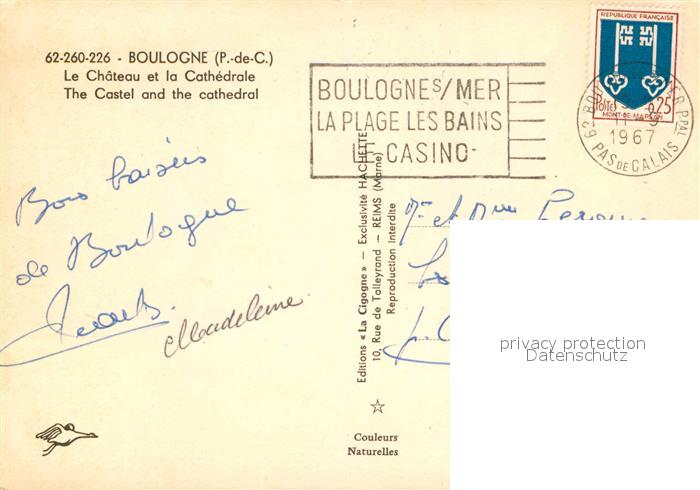 62-260-226 - BOULOGNE (P.-de-C.)
Le Château et la Cathédrale
The Castel and the cathedral
BOULOGNE S/MER
LA PLAGE LES BAINS
LE CASINO
REPUBLIQUE FRANÇAISE
POSTES 0,25
MONT-DE-MARSAN
62 BOULOGNE MER PPAL
11-9
1967
PAS DE CALAIS
Bons baisers
de Boulogne
Madeleine
Editions « La Cigogne » — Exclusivité HACHETTE
10, Rue de Talleyrand — REIMS (Marne)
Reproduction Interdite
Mr et Mme
privacy protection
Datenschutz
Couleurs
Naturelles